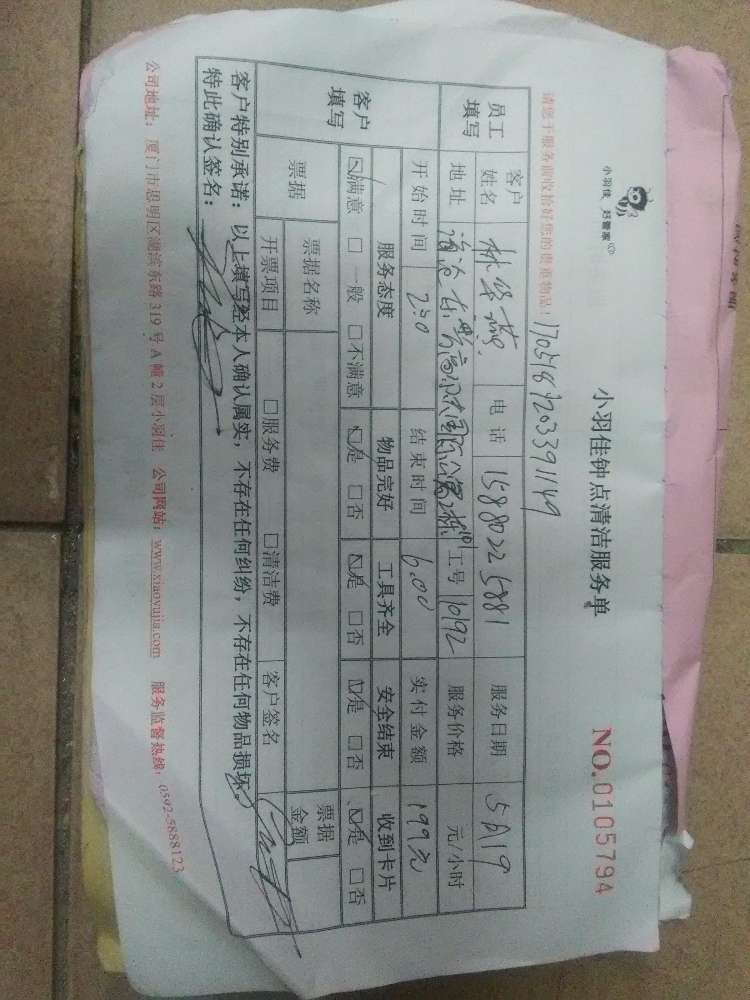 小羽佳 好管家
小羽佳钟点清洁服务单
NO.0105794
请您于服务前收拾好您的贵重物品!
1705189203391149
员工填写
客户姓名 电话 15880225881 服务日期 5月19
地址 工号 10192 服务价格 元/小时
开始时间 2:00 结束时间 6:00 实付金额 199元
客户填写
服务态度 物品完好 工具齐全 安全结束 收到卡片
☑满意 □一般 □不满意 ☑是 □否 ☑是 □否 ☑是 □否 ☑是 □否
票据 票据名称 票据金额
开票项目 □服务费 □清洁费 客户签名
客户特别承诺:以上填写经本人确认属实,不存在任何纠纷,不存在任何物品损坏。
特此确认签名:
公司地址:厦门市思明区湖滨东路319号A幢2层小羽佳 公司网站:www.xiaoyujia.com 服务监督热线:0592-5888123